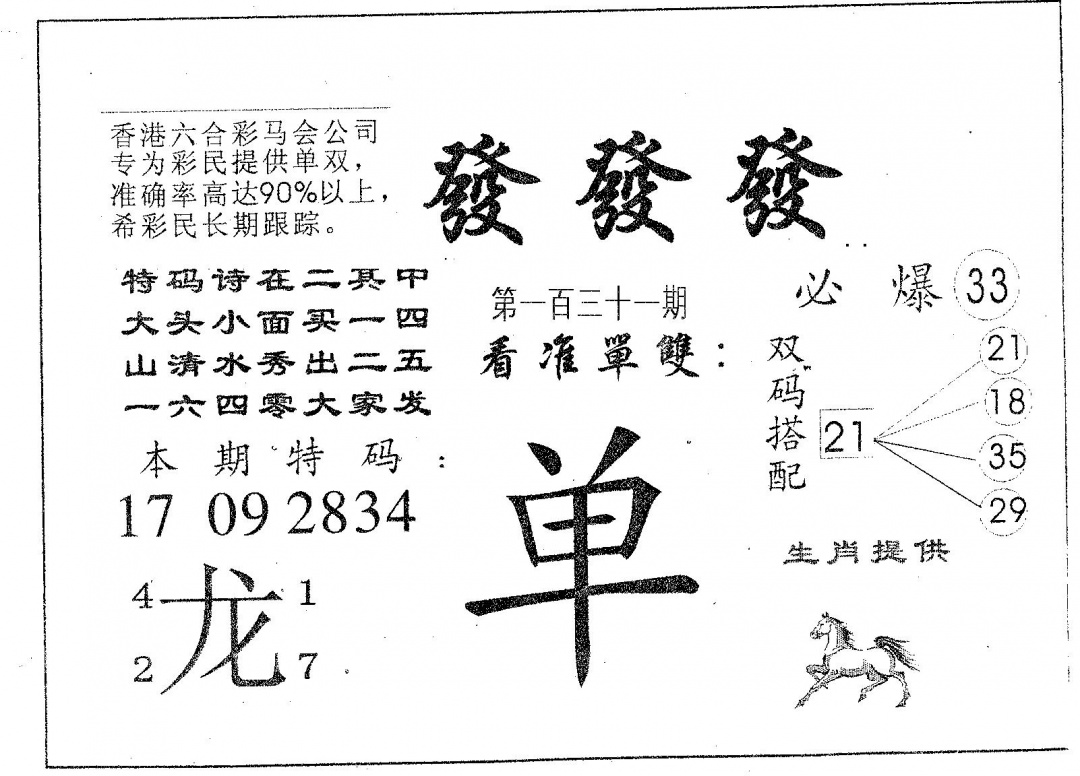 香港六合彩马会公司
专为彩民提供单双，
准确率高达90%以上，
希彩民长期跟踪。
發發發
特码诗在二其中
大头小面买一四
山清水秀出二五
一六四零大家发
第一百三十一期
看准單雙：
单
必爆 33
双码搭配
21
21
18
35
29
本期特码：
17 09 28 34
4 1
龙
2 7
生肖提供